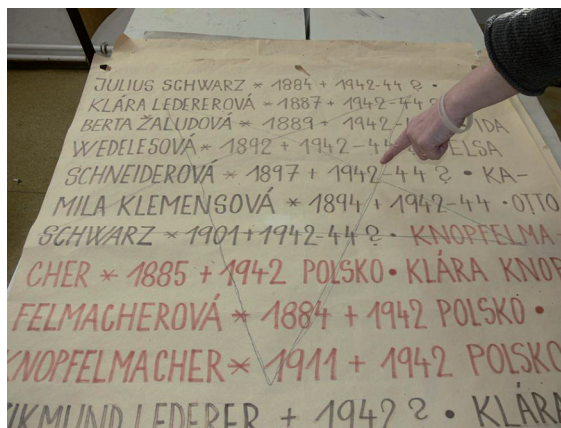 JULIUS SCHWARZ * 1884 + 1942-44 ? •
KLÁRA LEDEREROVÁ * 1887 + 1942-44 ?
BERTA ŽALUDOVÁ * 1889 + 1942-44 IDA
WEDELESOVÁ * 1892 + 1942-44 ? ELSA
SCHNEIDEROVÁ * 1897 + 1942-44 ? • KA-
MILA KLEMENSOVÁ * 1894 + 1942-44 • OTTO
SCHWARZ * 1901 + 1942-44 ? • KNOPFELMA-
CHER * 1885 + 1942 POLSKO • KLÁRA KNOP
FELMACHEROVÁ * 1884 + 1942 POLSKO •
KNOPFELMACHER * 1911 + 1942 POLSKO
ZIKMUND LEDERER + 1942 ? • KLÁRA